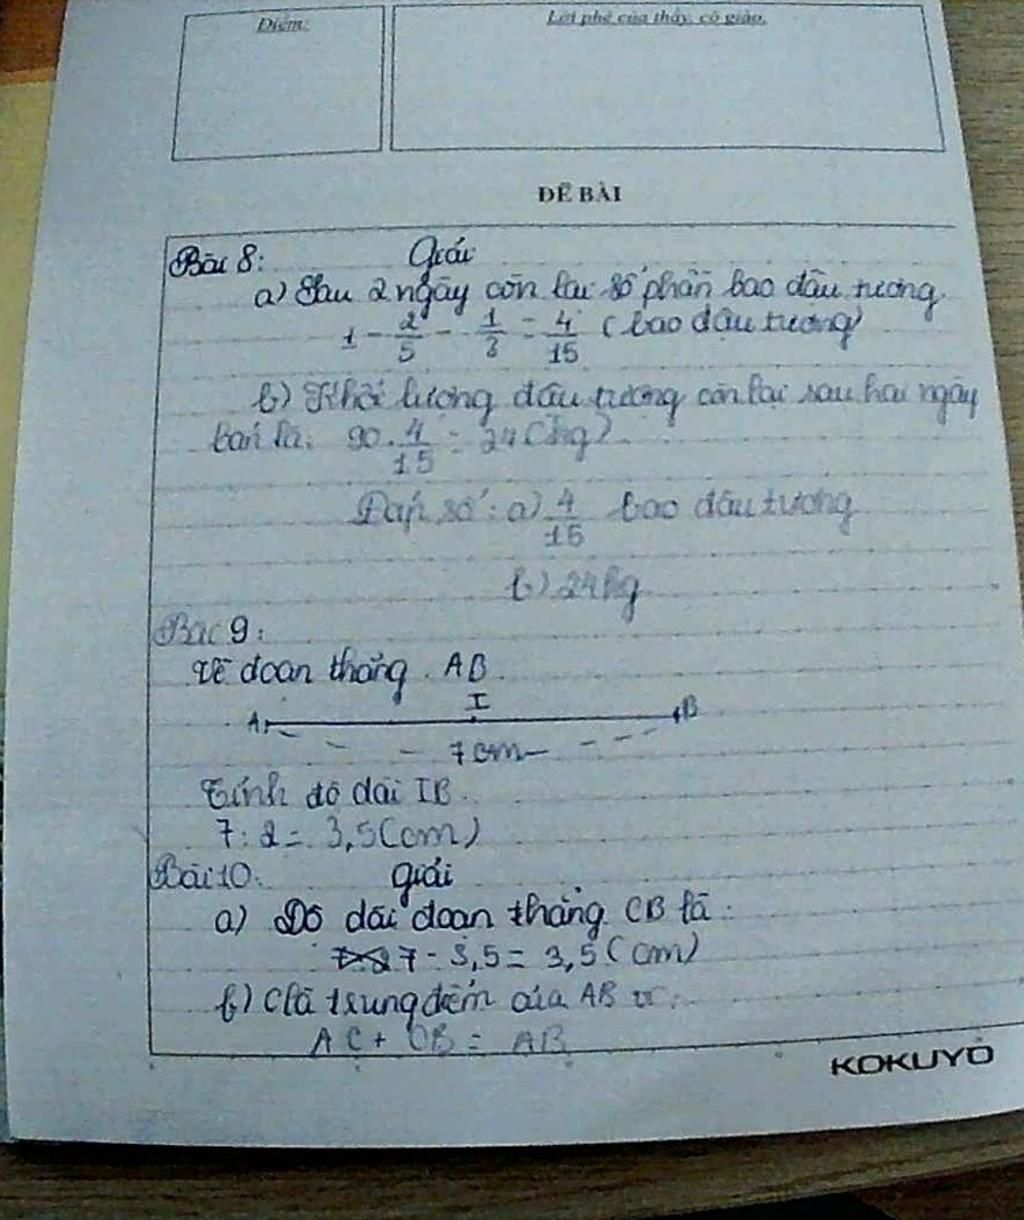 Điểm:
Lời phê của thầy, cô giáo.
ĐỀ BÀI
Bài 8: Giải
a) Sau 2 ngày còn lại số phần bao đậu tương
1 - 2/5 - 1/3 = 4/15 (bao đậu tương)
b) Khối lượng đậu tương còn lại sau hai ngày
bán là: 90. 4/15 = 24 (kg)
Đáp số: a) 4/15 bao đậu tương
b) 24kg
Bài 9:
Vẽ đoạn thẳng AB.
I
A B
7 cm
Tính độ dài IB.
7: 2 = 3,5 (cm)
Bài 10: giải
a) Độ dài đoạn thẳng CB là:
7 - 3,5 = 3,5 (cm)
b) C là trung điểm của AB vì:
AC + CB = AB
KOKUYO